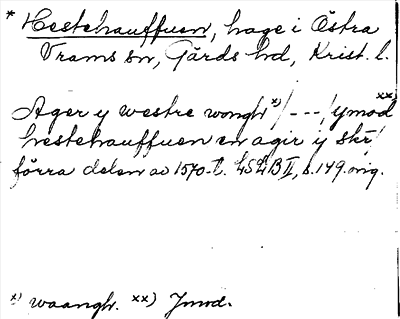 * Hestehauffuen, hage i Östra
Vrams sn, Gärds hd, Krist. l.
Ager y westre wongh x) /---/ ymod xx)
hestehauffuen en agir y skr /
förra delen av 1570-t. LSLB II, s. 149. orig.
x) waangh. xx) Jmod.